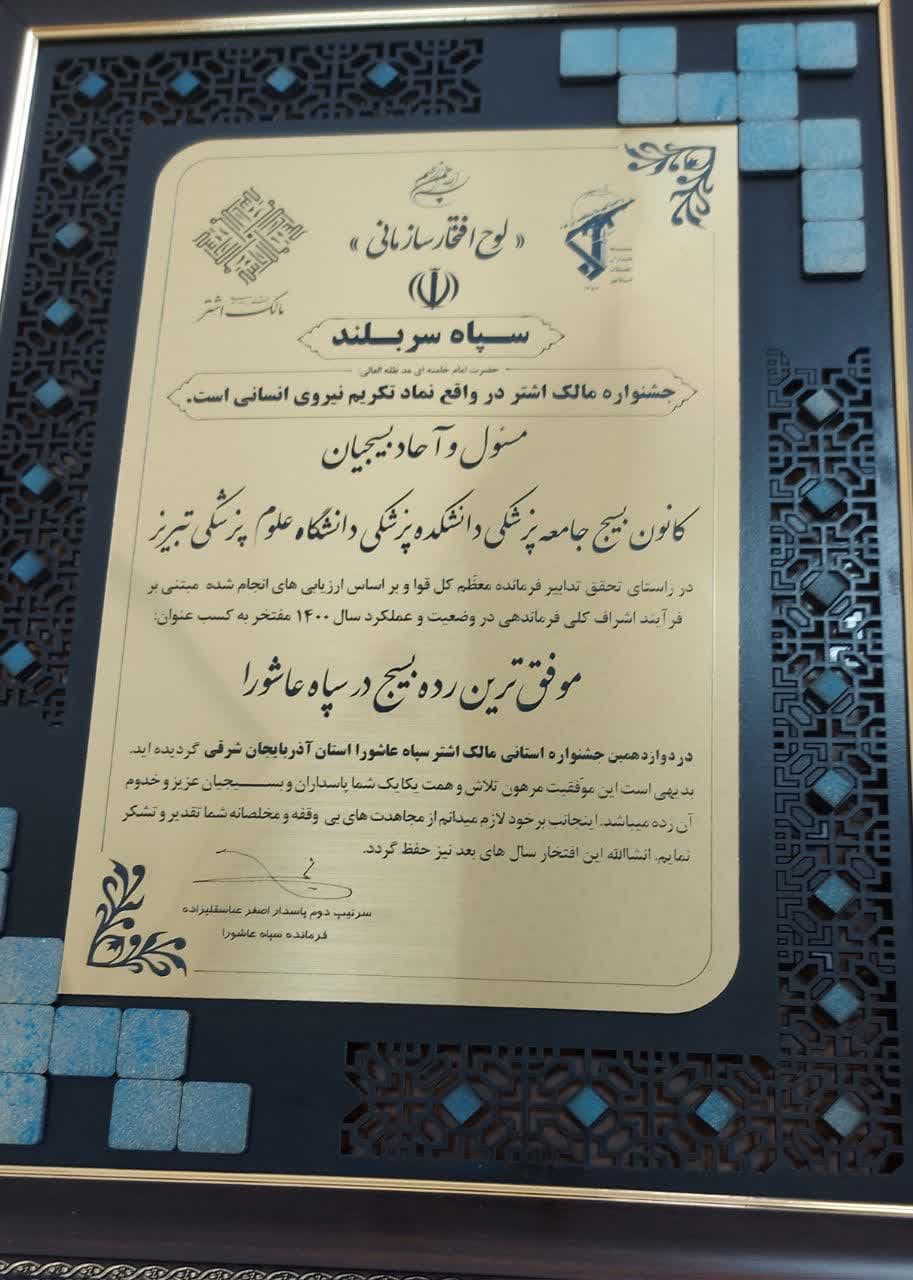 بسم الله الرحمن الرحیم
« لوح افتخار سازمانی »
مالک اشتر
سپاه سربلند
حضرت امام خامنه ای مد ظله العالی:
جشنواره مالک اشتر در واقع نماد تکریم نیروی انسانی است.
مسئول و آحاد بسیجیان
کانون بسیج جامعه پزشکی دانشکده پزشکی دانشگاه علوم پزشکی تبریز
در راستای تحقق تدابیر فرمانده معظّم کل قوا و بر اساس ارزیابی های انجام شده مبتنی بر
فرآیند اشراف کلی فرماندهی در وضعیت و عملکرد سال ۱۴۰۰ مفتخر به کسب عنوان:
موفق ترین رده بسیج در سپاه عاشورا
در دوازدهمین جشنواره استانی مالک اشتر سپاه عاشورا استان آذربایجان شرقی گردیده اید.
بدیهی است این موفّقیت مرهون تلاش و همت یکایک شما پاسداران و بسیجیان عزیز و خدوم
آن رده میباشد. اینجانب بر خود لازم میدانم از مجاهدت های بی وقفه و مخلصانه شما تقدیر و تشکر
نمایم. انشاالله این افتخار سال های بعد نیز حفظ گردد.
سرتیپ دوم پاسدار اصغر عباسقلیزاده
فرمانده سپاه عاشورا